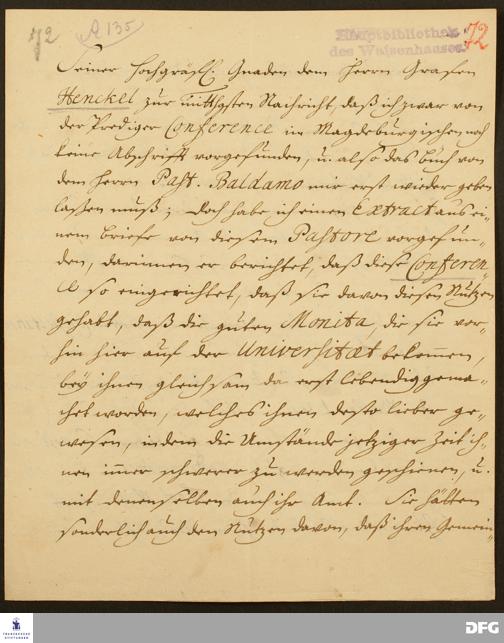 72
A 135
Hauptbibliothek
des Waisenhauses
72
Seiner Hochgräfl. Gnaden dem Herrn Grafen
Henckel zur Nachricht, daß ich zwar von
der Prediger Conference im Magdeburgischen noch
keine Abschrifft vorgefunden, u. also das buch von
dem Herrn Past. Baldamo mir erst wieder geben
laßen muß; doch habe ich einen Extract aus ei-
nem briefe von diesem Pastore vorgefun-
den, darinnen er berichtet, daß diese Conferen-
ce so eingerichtet, daß sie davon diesen Nutzen
gehabt, daß die guten Monita, die sie vor-
hin hier auf der Universitæt bekommen,
bey ihnen gleichsam da erst lebendig gema-
chet worden, welches ihnen desto lieber ge-
wesen, indem die Umstände jetziger Zeit ih-
nen immer schwerer zu werden geschienen, u.
mit denenselben auch ihr Amt. Sie hätten
sonderlich auch den Nutzen davon, daß ihren Gemein-
FRANCKESCHE
STIFTUNGEN
DFG